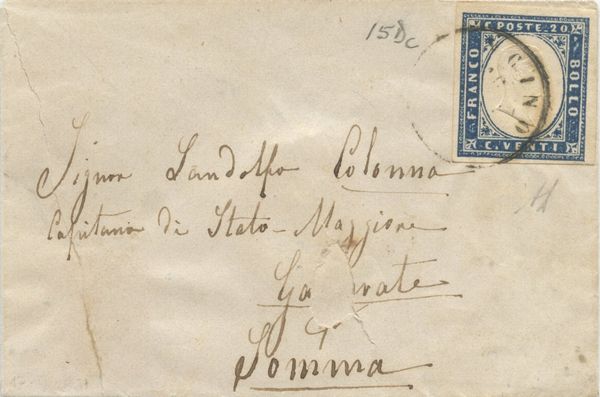 15Dc
C. POSTE. 20
FRANCO
BOLLO
C. VENTI
Signor Landolfo Colonna
Capitano di Stato-Maggiore
Somma